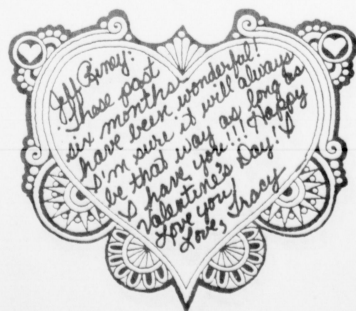 Jeff Birney:
These past
six months
have been wonderful!
I'm sure it will always
be that way as long as
I have you!!! Happy
Valentine's Day!
Love you!
Love, Tracy